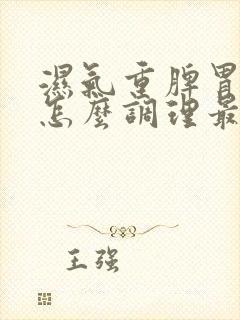 濕氣重脾胃
怎麼調理最
王强